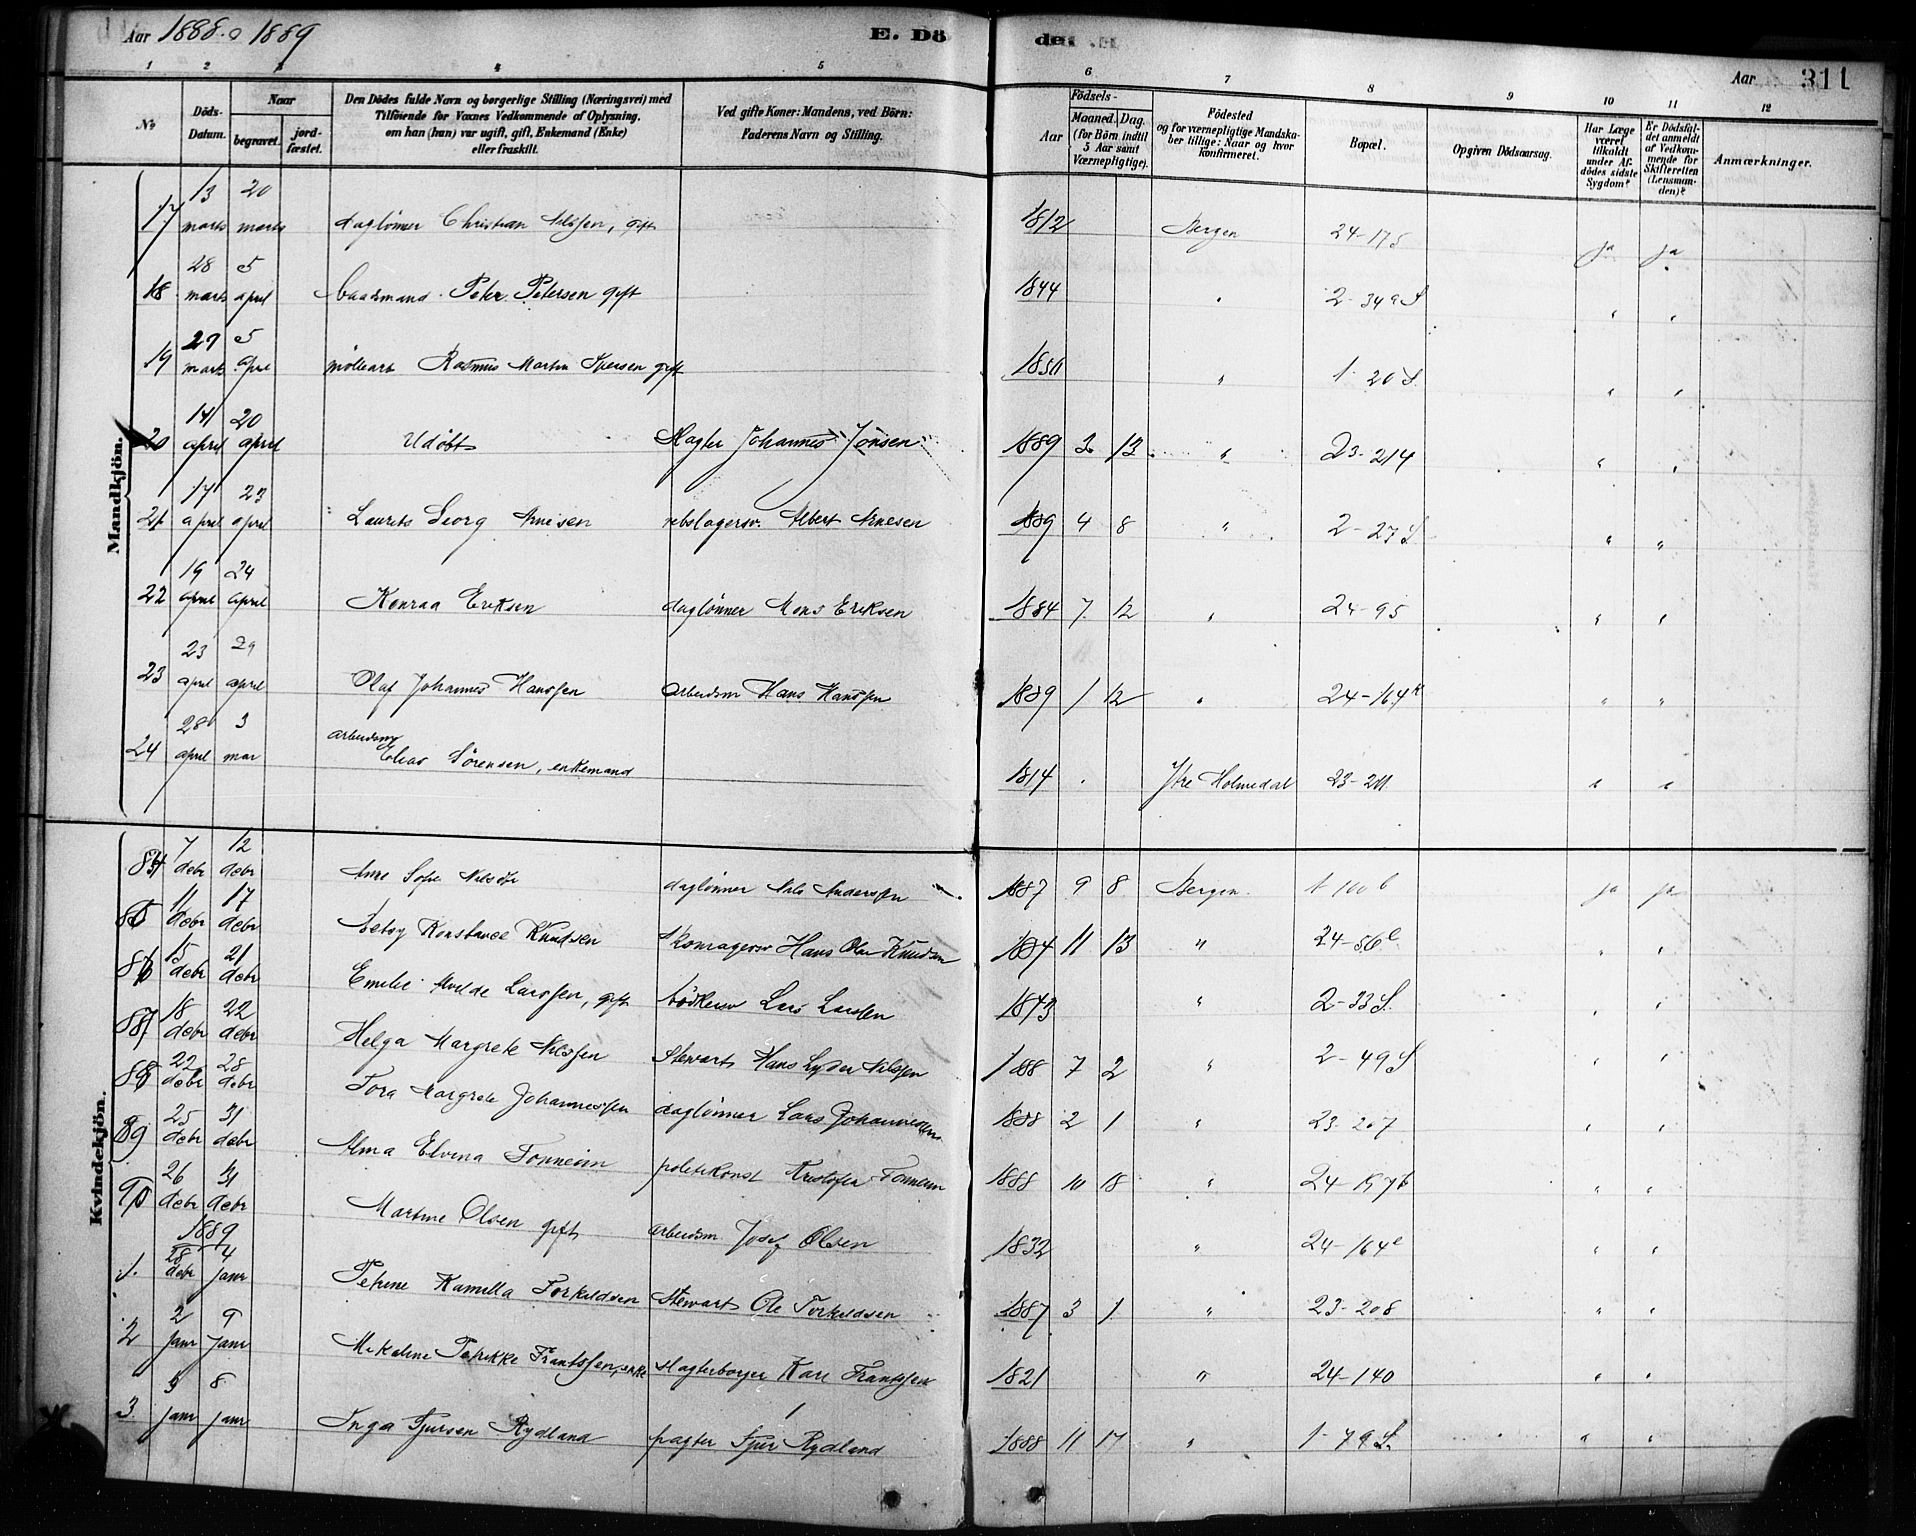 Aar 1888 o 1889
E. Dö
de
Aar 311
1 2 3 4 5 6 7 8 9 10 11 12
No
Döds-Datum.
Naar
begravet.
jord-fæstet.
Den Dödes fulde Navn og borgerlige Stilling (Næringsvei) med
Tilföiende for Voxnes Vedkommende af Oplysning,
om han (hun) var ugift, gift, Enkemand (Enke)
eller fraskilt.
Ved gifte Koner: Mandens, ved Börn:
Faderens Navn og Stilling.
Födsels-
Aar
Maaned. Dag.
(for Börn indtil
5 Aar samt
Værnepligtige).
Födested
og for værnepligtige Mandska-
ber tillige: Naar og hvor
Konfirmeret.
Bopæl.
Opgiven Dödsaarsag.
Har Læge
været
tilkaldt
under Af-
dödes sidste
Sygdom?
Er Dödsfal-
det anmeldt
af Vedkom-
mende for
Skifteretten
(Lensman-
den)?
Anmærkninger.
Mandkjön.
17 13 marts 20 marts daglönner Christian Nilssen, gift 1812 Bergen 24-175 ja ja
18 28 marts 5 april Peter Petersen gift 1844 " 2-349 S " "
19 29 marts 5 april möllearb Rasmus Martin Iversen gift 1850 " 1-20 S. " "
20 14 april 20 april Udöbt Slagter Johannes Jonsen 1889 2 12 " 23-214 " "
21 17 april 23 april Laurits Georg Arnesen rebslagersv. Albert Arnesen 1889 4 8 " 2-27 S. " "
22 19 april 24 april Konrad Eriksen daglönner Mons Eriksen 1884 7 12 " 24-95 " "
23 23 april 29 april Olaf Johannes Hanssen arbeidsm Hans Hanssen 1889 1 12 " 24-164 " "
24 28 april 3 mai arbeidsm Elias Sörensen, enkemand 1814 Ytre Holmedal 23-211 " "
Kvindekjön.
84 7 decbr 12 decbr Anne Sofie daglönner Nils Anderssen 1887 9 8 Bergen 1 100 b ja ja
85 11 decbr 17 decbr Betsy Konstance Knudsen Skomagersv Hans Olai Knudsen 1884 11 13 " 24-56 " "
86 15 decbr 21 decbr Emilie Larssen, gift bödkersv Lars Larssen 1843 " 2-33 S. " "
87 18 decbr 22 decbr Helga Margrete Nilssen Stewart Hans Lyder Nilssen 1888 7 2 " 2-49 S " "
88 22 decbr 28 decbr Tora Margrete Johannessen daglönner Lars Johannessen 1888 2 1 " 23-207 " "
89 25 decbr 31 decbr Alma Elvina politikonst Kristofer 1888 10 18 " 24-157b " "
90 26 decbr 31 decbr Martine Olsen gift arbeidsm Josef Olsen 1832 " 24-164 " "
1889
1. 28 decbr 4 janr Petrine Kamilla Torkildsen Stewart Ole Torkildsen 1887 3 1 " 23-208 " "
2 2 janr 9 janr Mikaline Petrikke Frantssen, enke Slagterborger Karl Frantssen 1821 " 24-140 " "
3. 5 janr 8 janr Inga Sjursen Rydland pagter Sjur Rydland 1888 11 17 " 1-79 S. " "